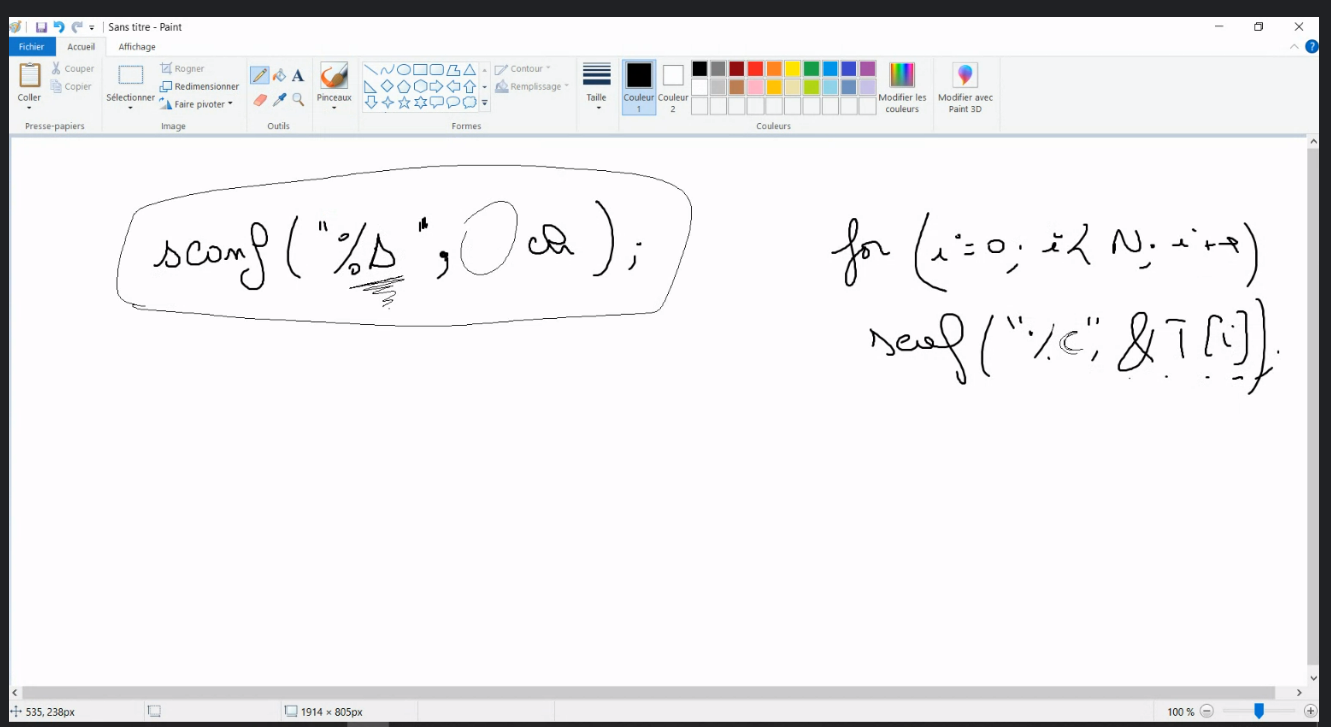 Sans titre - Paint
Fichier Accueil Affichage
Coller
Couper
Copier
Presse-papiers
Sélectionner
Rogner
Redimensionner
Faire pivoter
Image
A
Outils
Pinceaux
Contour
Remplissage
Formes
Taille
Couleur 1
Couleur 2
Modifier les couleurs
Couleurs
Modifier avec Paint 3D
scanf ("%s", ch);
for (i=0; i< N; i++)
scanf ("%c", & T [i]).
535, 238px
1914 × 805px
100 %